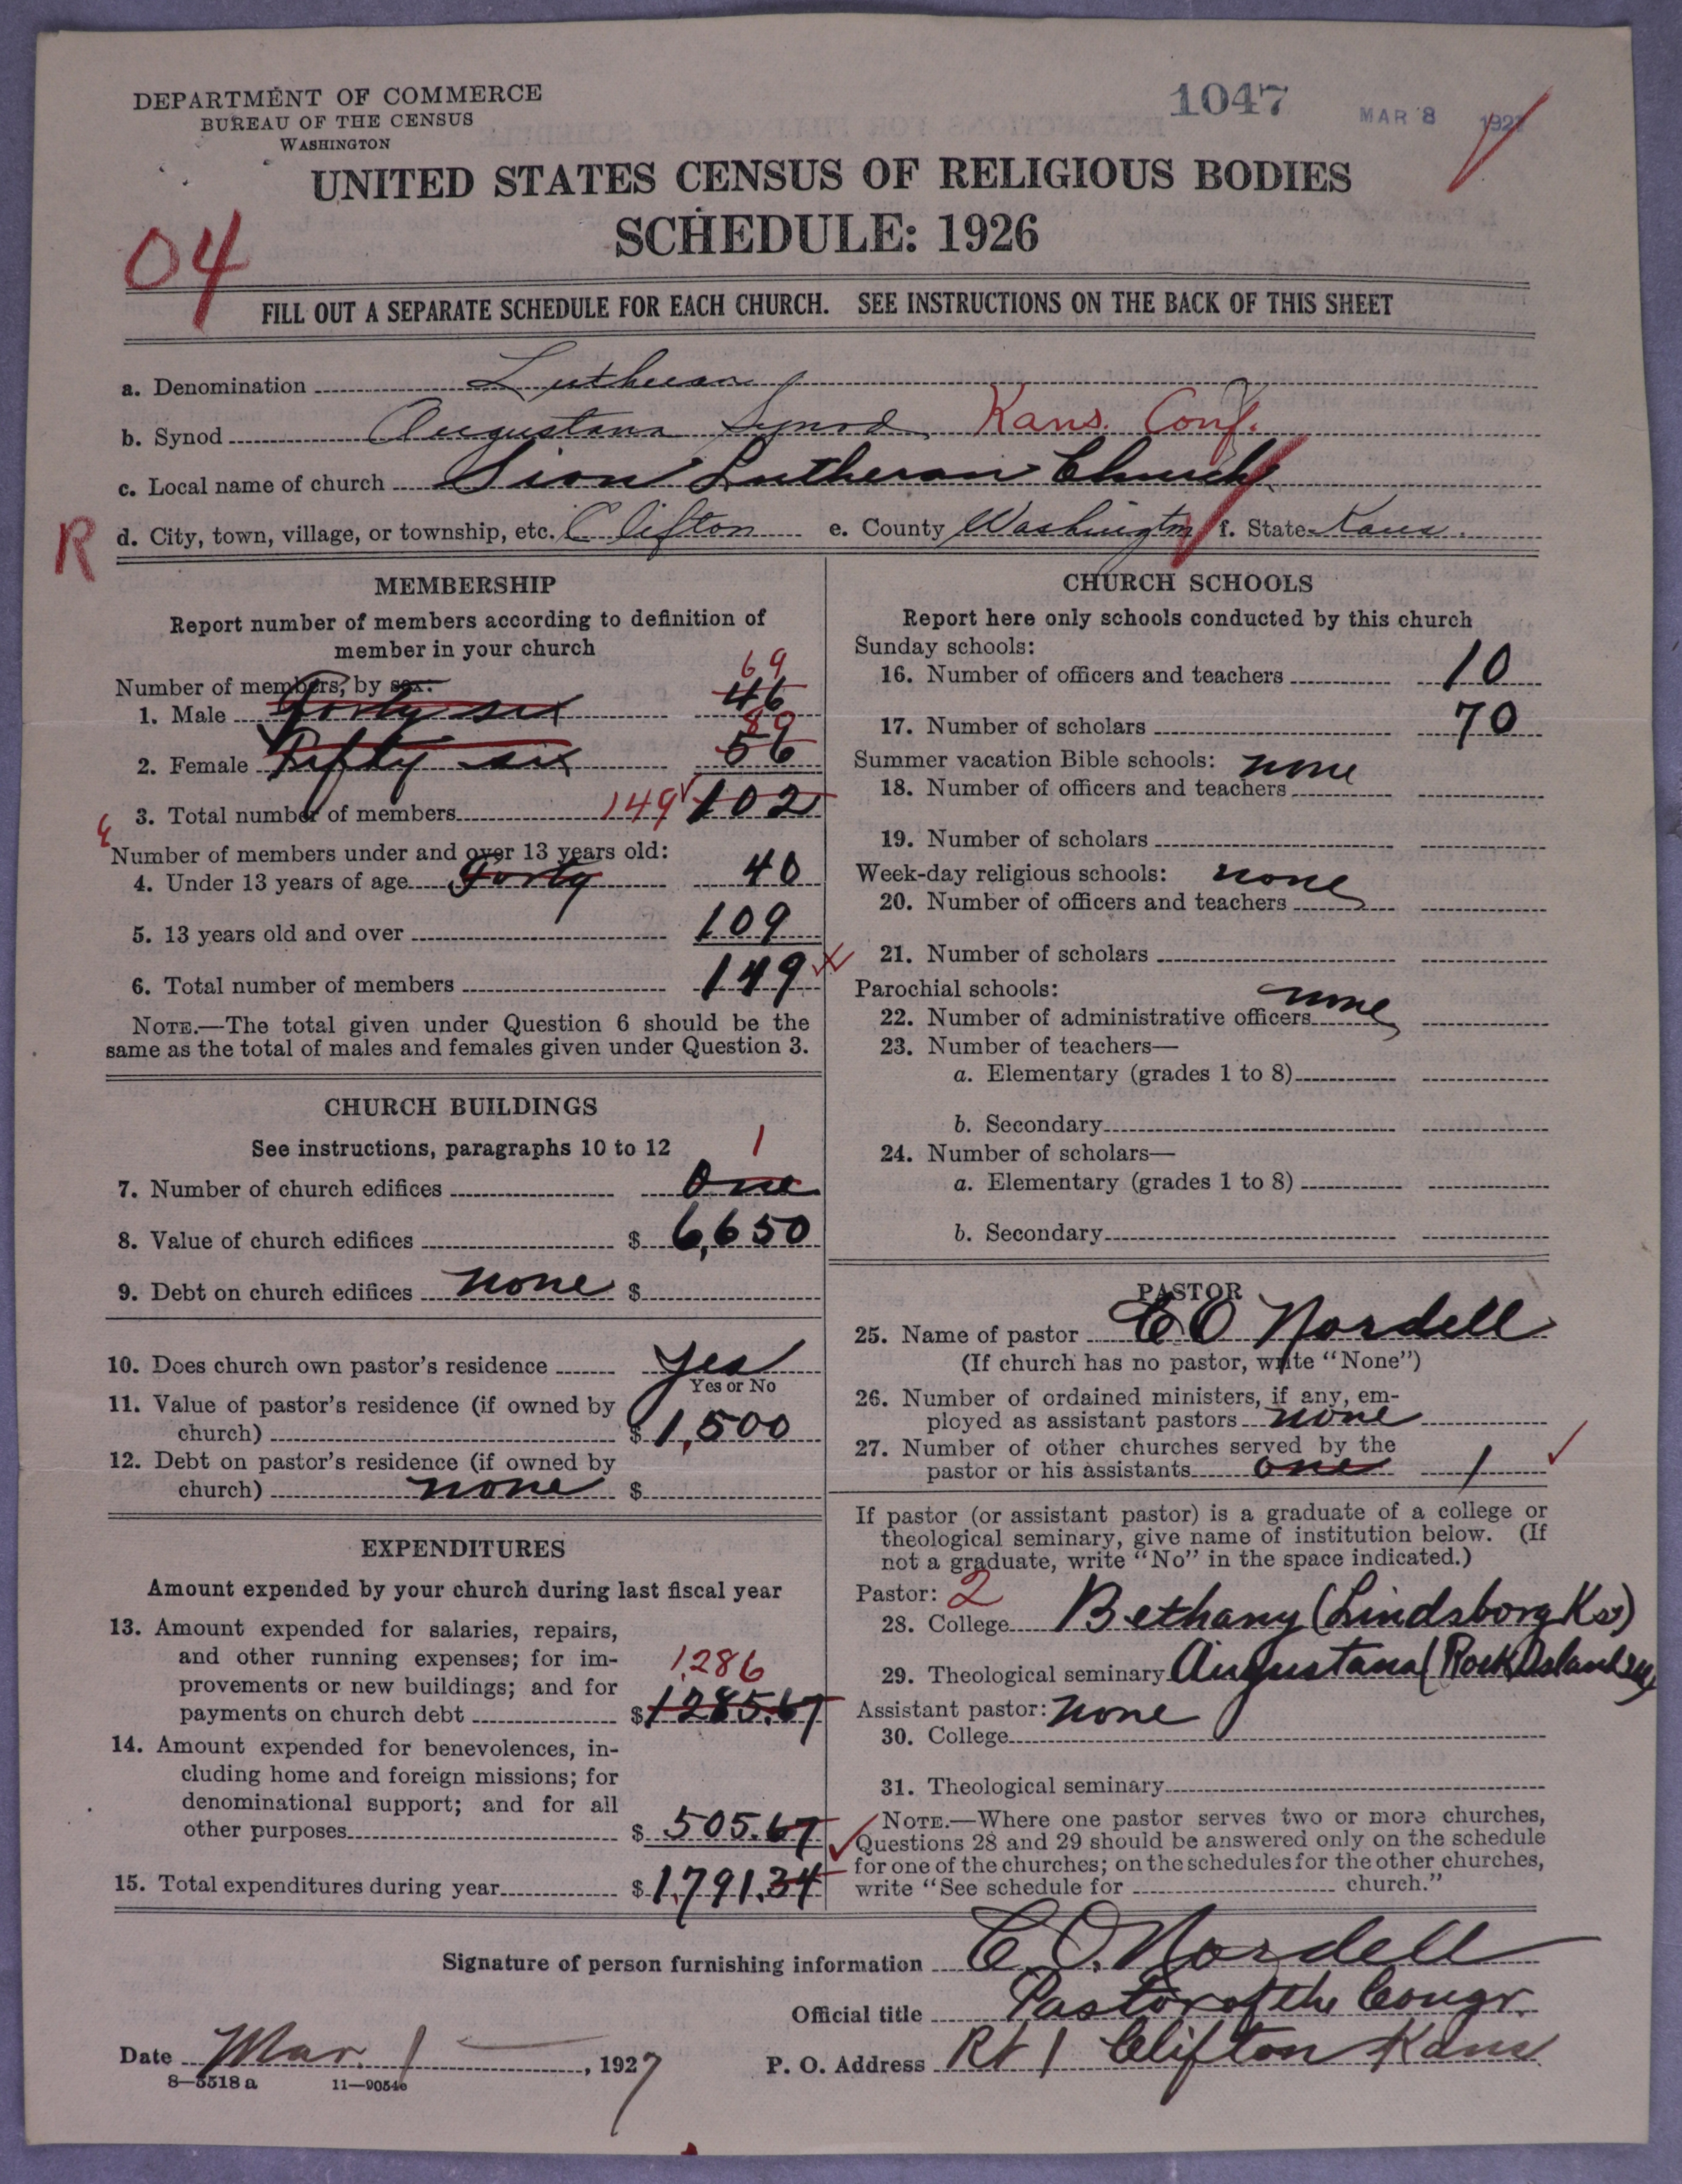 DEPARTMENT OF COMMERCE
BUREAU OF THE CENSUS
WASHINGTON
1047
MAR 8 1927
UNITED STATES CENSUS OF RELIGIOUS BODIES
SCHEDULE: 1926
04
FILL OUT A SEPARATE SCHEDULE FOR EACH CHURCH. SEE INSTRUCTIONS ON THE BACK OF THIS SHEET
a. Denomination Lutheran
b. Synod Augustana Synod Kans. Conf.
c. Local name of church Sion Lutheran Church
R
d. City, town, village, or township, etc. Clifton e. County Washington f. State Kans.
MEMBERSHIP
Report number of members according to definition of
member in your church
Number of members, by sex:
69
1. Male Forty six 46
80
2. Female Fifty six 56
3. Total number of members 149 102
Number of members under and over 13 years old:
4. Under 13 years of age Forty 40
5. 13 years old and over 109
6. Total number of members 149
NOTE.—The total given under Question 6 should be the
same as the total of males and females given under Question 3.
CHURCH BUILDINGS
See instructions, paragraphs 10 to 12
1
7. Number of church edifices One
8. Value of church edifices $ 6,650
9. Debt on church edifices none $
10. Does church own pastor's residence Yes
Yes or No
11. Value of pastor's residence (if owned by
church) $ 1,500
12. Debt on pastor's residence (if owned by
church) none $
EXPENDITURES
Amount expended by your church during last fiscal year
13. Amount expended for salaries, repairs,
and other running expenses; for im-
provements or new buildings; and for
1,286
payments on church debt $ 1285.67
14. Amount expended for benevolences, in-
cluding home and foreign missions; for
denominational support; and for all
other purposes $ 505.67
15. Total expenditures during year $ 1,791.34
CHURCH SCHOOLS
Report here only schools conducted by this church
Sunday schools:
16. Number of officers and teachers 10
17. Number of scholars 70
Summer vacation Bible schools: none
18. Number of officers and teachers
19. Number of scholars
Week-day religious schools: none
20. Number of officers and teachers
21. Number of scholars
Parochial schools: none
22. Number of administrative officers
23. Number of teachers—
a. Elementary (grades 1 to 8)
b. Secondary
24. Number of scholars—
a. Elementary (grades 1 to 8)
b. Secondary
PASTOR
25. Name of pastor C O Nordell
(If church has no pastor, write "None")
26. Number of ordained ministers, if any, em-
ployed as assistant pastors none
27. Number of other churches served by the
pastor or his assistants one 1
If pastor (or assistant pastor) is a graduate of a college or
theological seminary, give name of institution below. (If
not a graduate, write "No" in the space indicated.)
Pastor: 2
28. College Bethany (Lindsborg Ks)
29. Theological seminary Augustana (Rock Island Ill)
Assistant pastor: none
30. College
31. Theological seminary
NOTE.—Where one pastor serves two or more churches,
Questions 28 and 29 should be answered only on the schedule
for one of the churches; on the schedules for the other churches,
write "See schedule for church."
Signature of person furnishing information C. O. Nordell
Official title Pastor of the Congr.
Date Mar. 1, 1927
P. O. Address Rt 1 Clifton Kans
8—5518 a 11—9054